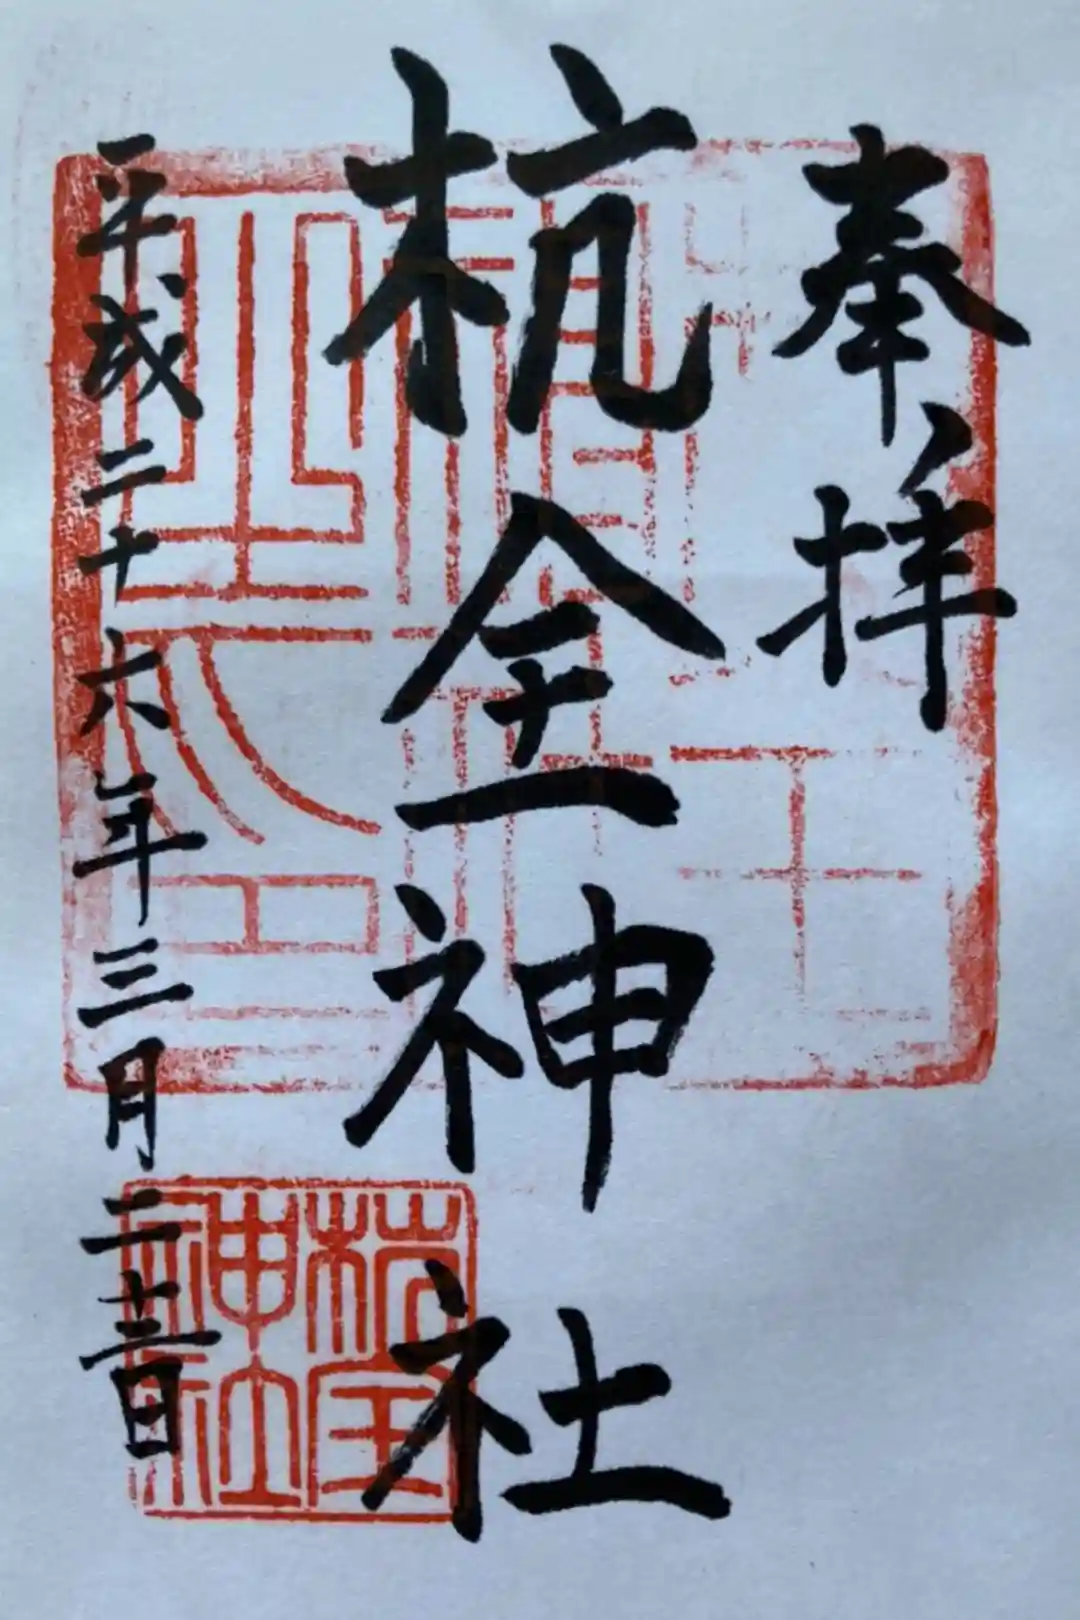 奉拝
杭全神社
平成二十六年三月二十三日
杭全
神社